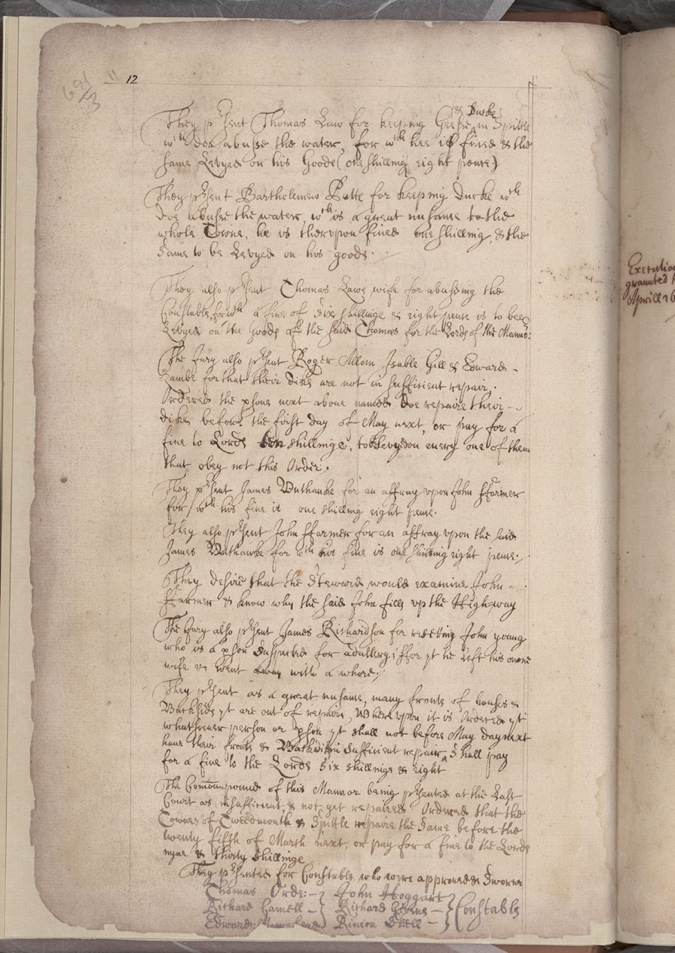 691/3 11 12
or Ducks
They p'sent Thomas Law for keeping Geese in Spittle
wch doe abuse the water, for wch hee is fined & the
same Levyed on his Goods (one shilling eight pence)
They p'sent Bartholomew Batte for keeping Ducks wch
doe abuse the water, wch is a great nusance to the
whole Towne, he is thereupon fined one shilling, & the
same to be Levyed on his goods.
They also p'sent Thomas Laws wife for abusing the
Constable, for wch a fine of Six shillings & eight pence is to bee
Levyed on the Goods of the said Thomas for the Lords of the Mannor
The Jury also p'sent Roger Allom Isable Gill & Edward
Lambe for that their dikes are not in sufficient repair.
Ordered the p'sons next above named doe repaire their
dikes before the first day of May next, or pay for a
fine to Lords ten shillings, to be levyed on every one of them
that obey not this Order.
They p'sent James for an affray upon John Ffarmer
for wch his fine is one shilling eight pence.
They also p'sent John Ffarmer for an affray upon the said
James for wch his fine is one shilling eight pence.
They desire that the Stewards would examine John
Ffarmer & know why the said John fills up the Highway
The Jury also p'sent James Richardson for John young
who is a p'son suspected for adultery yt he left his owne
wife & went away with a whore.
They p'sent as a great nusance, many fronts of houses &
Backsides yt are out of repaire, Whereupon it is Ordered yt
whatsoever person or p'sons yt shall not before May day next
have their fronts & Backsides in sufficient repair, Shall pay
for a fine to the Lords six shillings & eight
The Common pound of this Mannor being p'sented at the Last
Court as insufficient, & not yet repaired Ordered that the
Townes of Tweedmouth & Spittle repaire the same before the
twenty fifth of March next, or pay for a fine to the Lords
nyne & thirty shillings
They p'sented for Constables who were approved & sworne
Thomas Orde John Hoggart
Richard Gamell Richard Constable
Edward
Execution
granted
Aprill 16